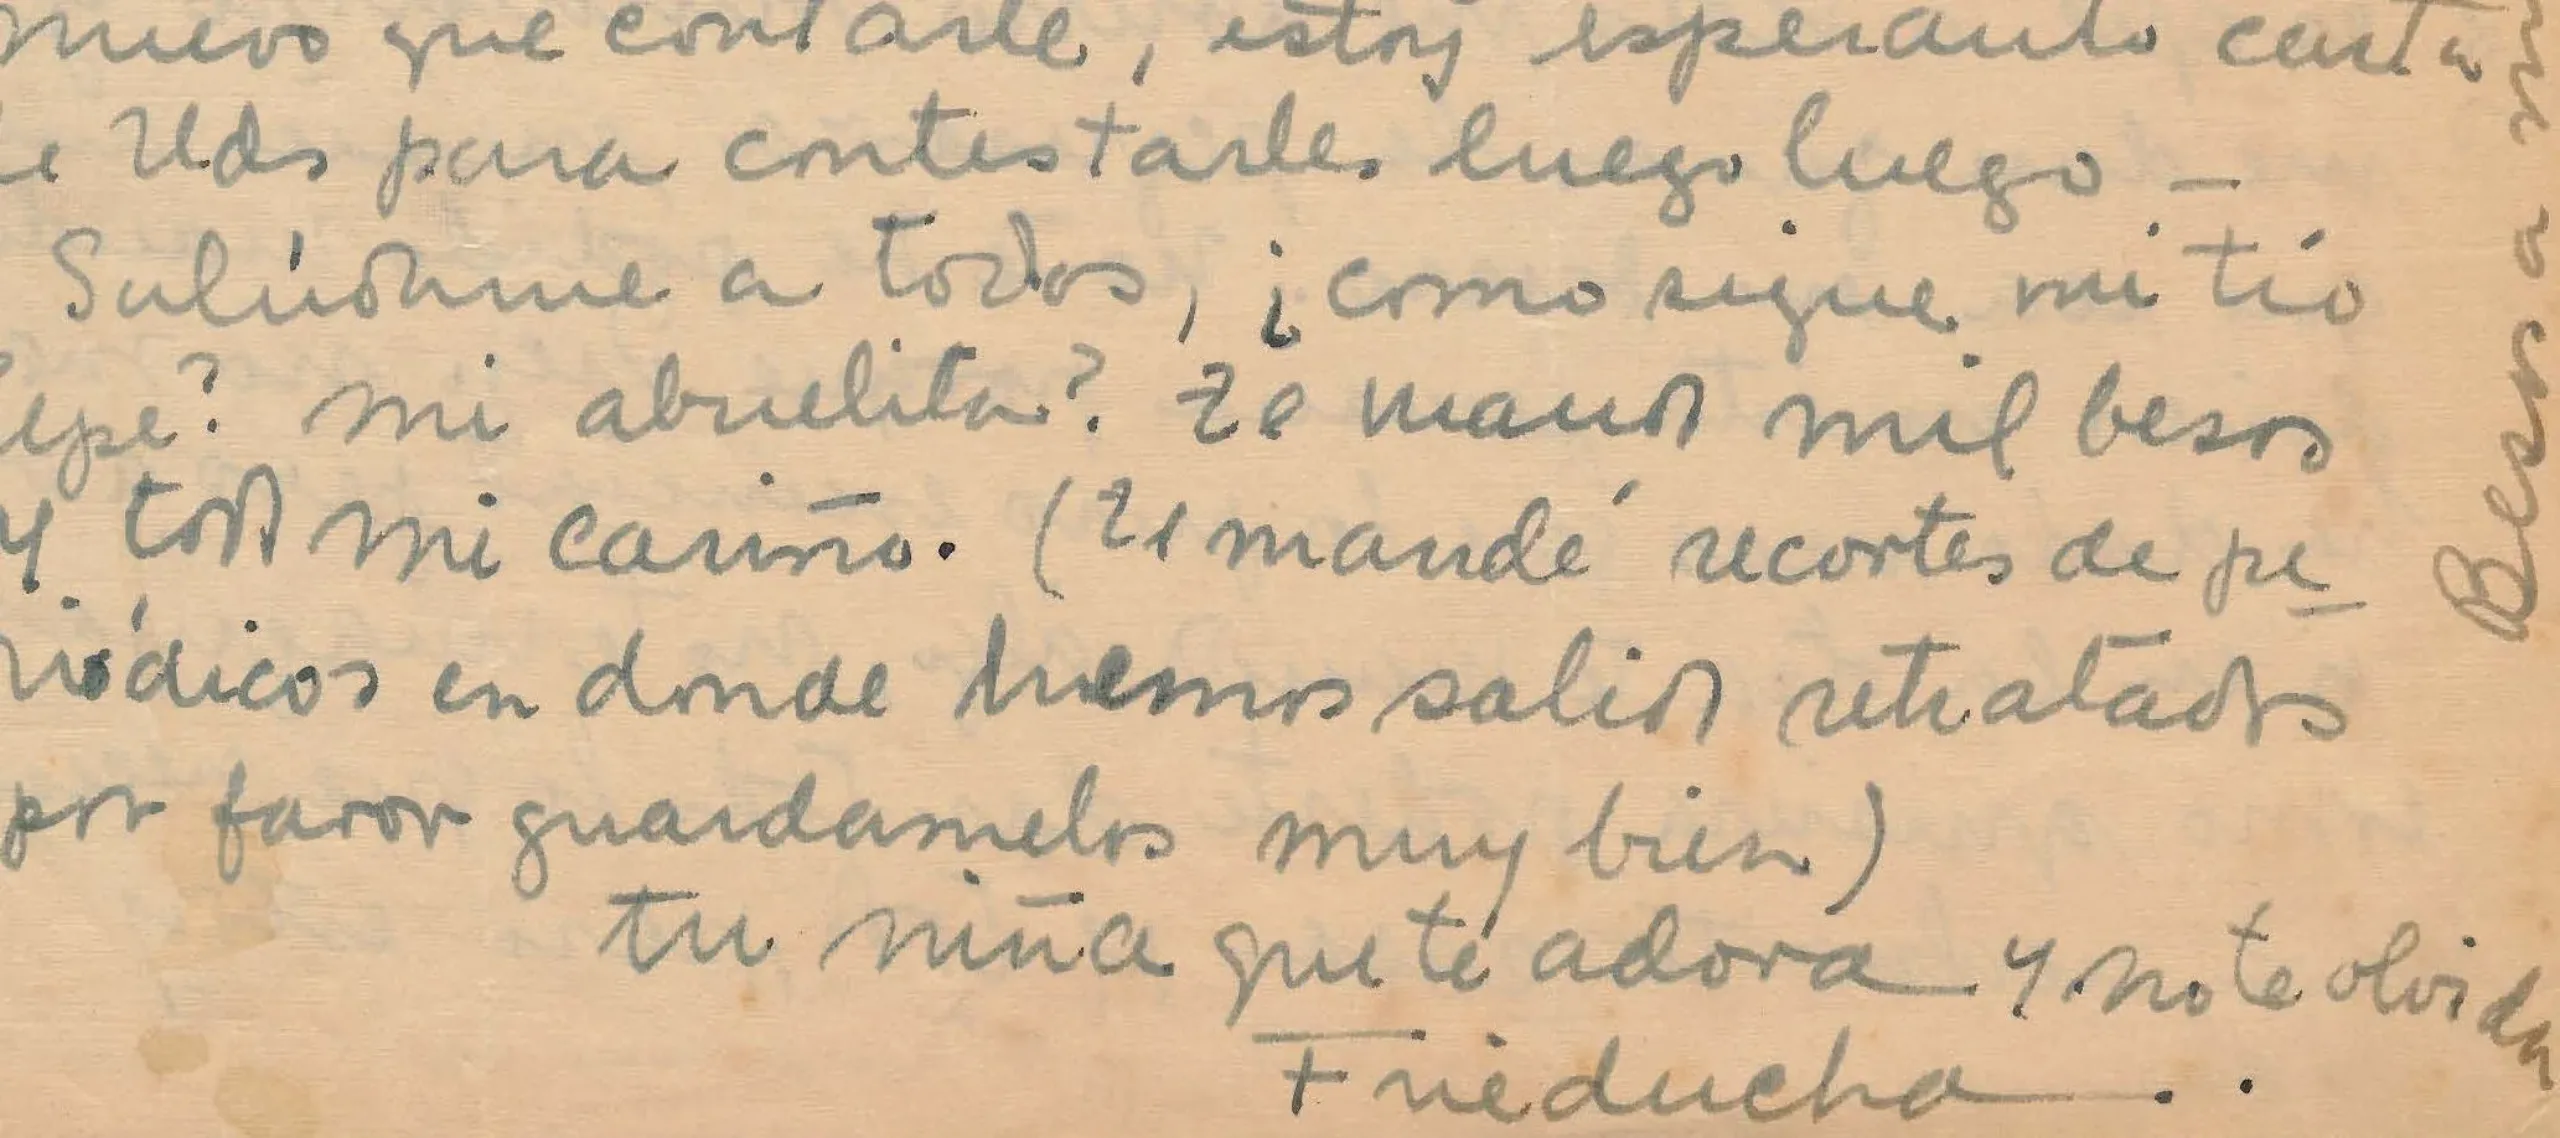 nuevo que contarte, estoy esperando carta
de Uds para contestarles luego luego –
Salúdame a todos, ¿como sigue mi tío
Pepe? mi abuelita? Te mando mil besos
y todo mi cariño. (Te mandé recortes de pe
riódicos en donde hemos salido retratados
por favor guardamelos muy bien)
tu niña que te adora y no te olvida
Frieducha . .
Beso a